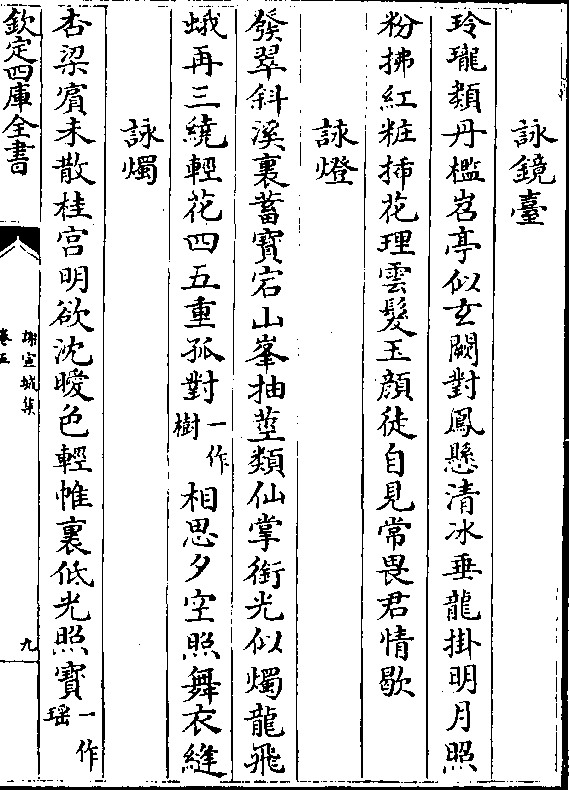 詠鏡臺
玲瓏類丹檻岧亭似玄闕對鳳懸清冰垂龍掛明月照
粉拂紅粧揷花理雲髮玉顔徒自見常畏君情歇
詠燈
發翠斜溪裏蓄寶宕山峯抽莖類仙掌銜光似燭龍飛
蛾再三繞輕花四五重孤對一作樹相思夕空照舞衣縫
詠燭
杏梁賓未散桂宫明欲沈曖色輕帷裏低光照寳一作瑶
欽定四庫全書
謝宣城集
卷五
九